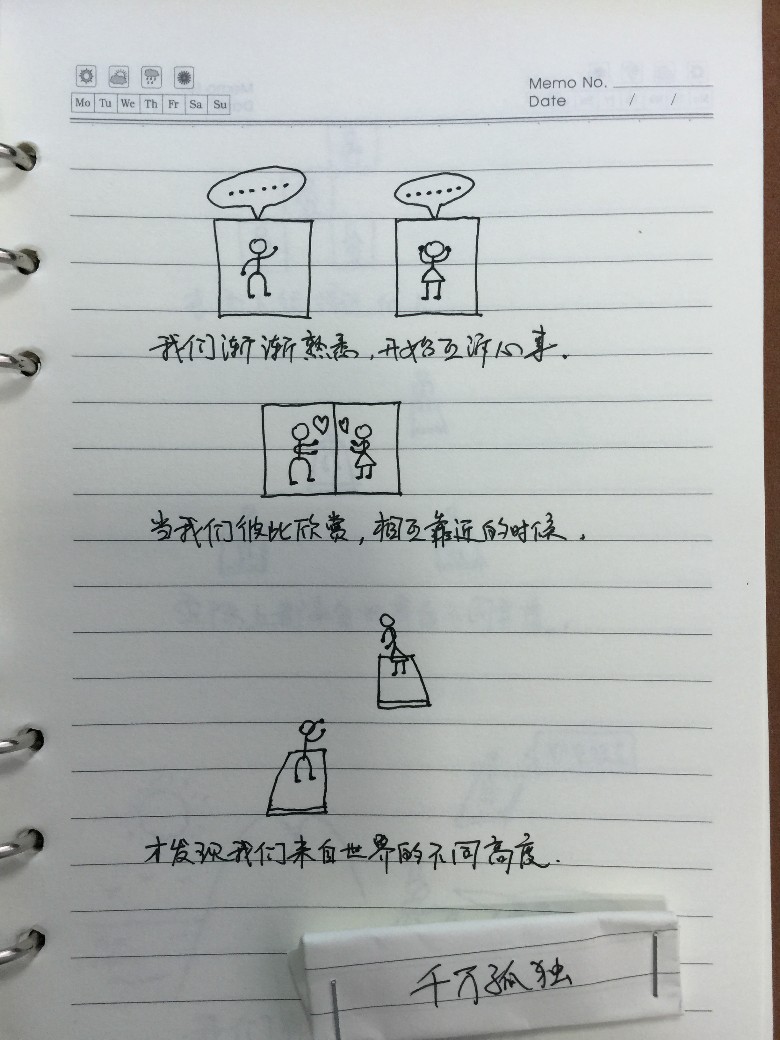 Memo No.
Mo Tu We Th Fr Sa Su
Date / /
......
......
我们渐渐熟悉,开始互诉心事.
当我们彼此欣赏,相互靠近的时候.
才发现我们来自世界的不同高度.
千万孤独